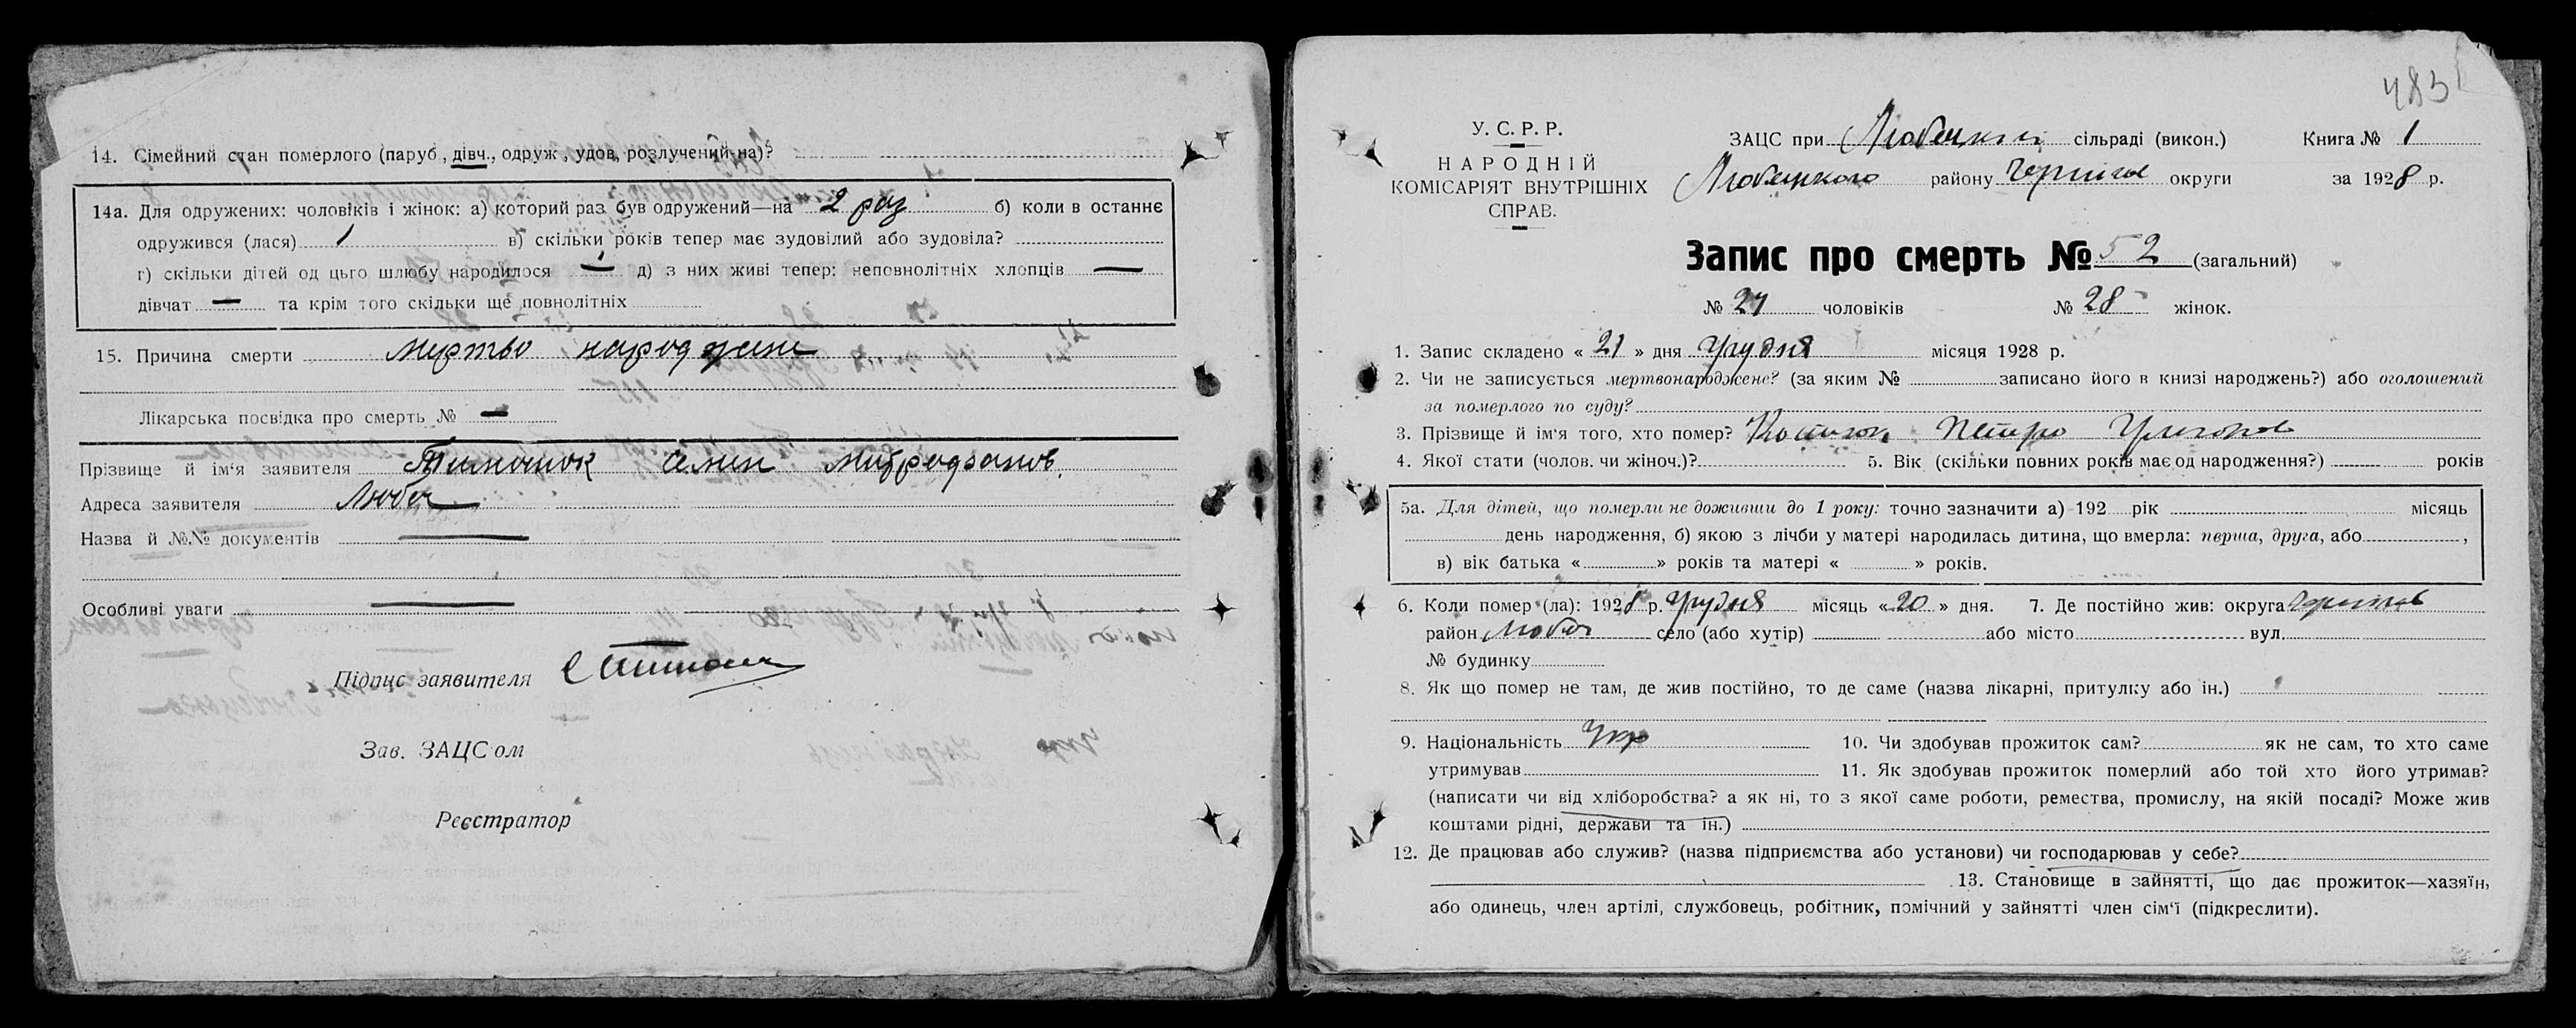 14. Сімейний стан померлого (паруб, дівч., одруж, удов, розлучений-на)?
14а. Для одружених: чоловіків і жінок: а) который раз був одружений—на 2 раз б) коли в останнє
одружився (лася) в) скільки років тепер має зудовілий або зудовіла?
г) скільки дітей од цього шлюбу народилося — д) з них живі тепер: неповнолітніх хлопців —
дівчат — та крім того скільки ще повнолітніх
15. Причина смерти мертво народжене
Лікарська посвідка про смерть № —
Прізвище й ім'я заявителя Тимошок Семен Митрофанов.
Адреса заявителя Любеч
Назва й №№ документів —
Особливі уваги —
Підпис заявителя
Зав. ЗАЦС'ом
Реєстратор
483
У. С. Р. Р.
НАРОДНІЙ
КОМІСАРІЯТ ВНУТРІШНІХ
СПРАВ.
ЗАЦС при Любецкий сільраді (викон.) Книга № 1
Любецкого району Черниг округи за 1928 р.
Запис про смерть № 52 (загальний)
№ 24 чоловіків № 28 жінок.
1. Запис складено « 21 » дня Грудня місяця 1928 р.
2. Чи не записується мертвонароджене? (за яким № записано його в книзі народжень?) або оголошений
за померлого по суду?
3. Прізвище й ім'я того, хто помер? Петро
4. Якої стати (чолов. чи жіноч.)? 5. Вік (скільки повних років має од народження?) років
5а. Для дітей, що померли не доживши до 1 року: точно зазначити а) 192 рік місяць
день народження, б) якою з лічби у матері народилась дитина, що вмерла: перша, друга, або ,
в) вік батька « » років та матері « » років.
6. Коли помер (ла): 1928 р. Грудня місяць « 20 » дня. 7. Де постійно жив: округа Чернигов
район Любеч село (або хутір) або місто вул.
№ будинку
8. Як що помер не там, де жив постійно, то де саме (назва лікарні, притулку або ін.)
9. Національність Укр 10. Чи здобував прожиток сам? як не сам, то хто саме
утримував 11. Як здобував прожиток померлий або той хто його утримав?
(написати чи від хліборобства? а як ні, то з якої саме роботи, ремества, промислу, на якій посаді? Може жив
коштами рідні, держави та ін.)
12. Де працював або служив? (назва підприємства або установи) чи господарював у себе?
13. Становище в зайнятті, що дає прожиток—хазяїн,
або одинець, член артілі, службовець, робітник, помічний у зайнятті член сім'ї (підкреслити).